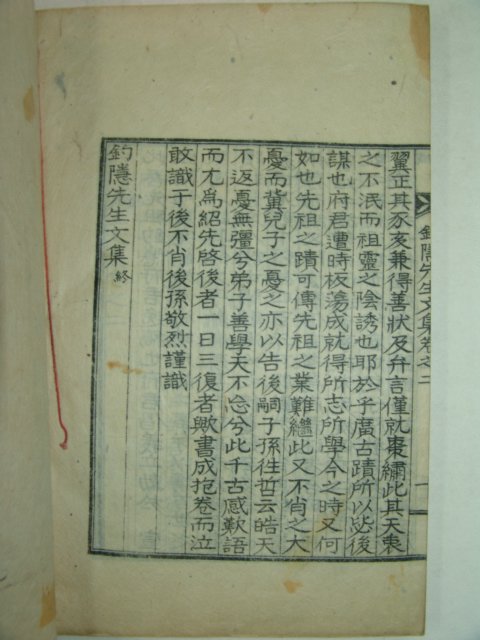 釣隱先生文集卷之二
翼正其豕亥兼得善狀及弁言僅就棗繡此其天衷
之不泯而祖靈之陰誘也耶於乎廣古蹟所以毖後
謀也府君遭時板蕩成就得所志所學今之時又何
如也先祖之蹟可傳先祖之業難繼此又不肖之大
憂而冀兒子之憂之亦以告後嗣子孫往哲云皓天
不返憂無彊兮弟子善學天不忘兮此千古感歎語
而尤爲紹先啓後者一日三復者歟書成抱卷而泣
敢識于後不肖後孫敬烈謹識
釣隱先生文集 終